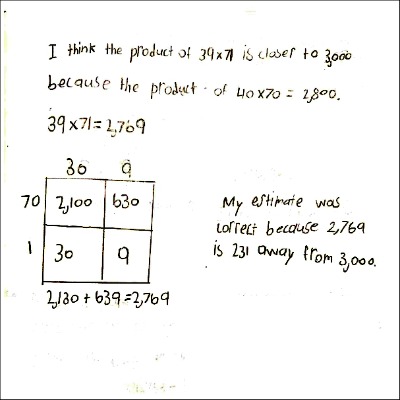 I think the product of 39x71 is closer to 3,000
because the product of 40x70 = 2,800.
39x71=2,769
30 9
70 2,100 630
1 30 9
2,130 + 639 = 2,769
My estimate was
correct because 2,769
is 231 away from 3,000.